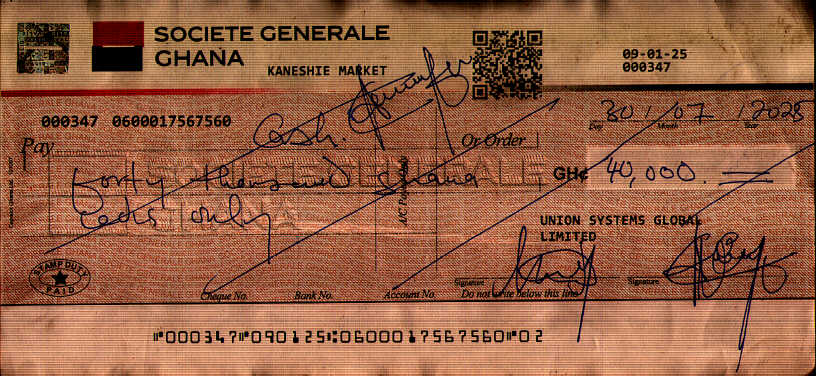 SOCIETE GENERALE
GHANA
KANESHIE MARKET
09-01-25
000347
000347 0600017567560
Day 30 Month 07 Year 2025
Pay Cash. Or Order
forty thousand ghana
cedis only
GH¢ 40,000.
A/C Payee Only
SOCIETE GENERALE
GHANA
UNION SYSTEMS GLOBAL
LIMITED
STAMP DUTY
PAID
Signature
Signature
Cheque No. Bank No. Account No. Do not write below this line
⑈000347⑈090125⑆0600017567560⑈02